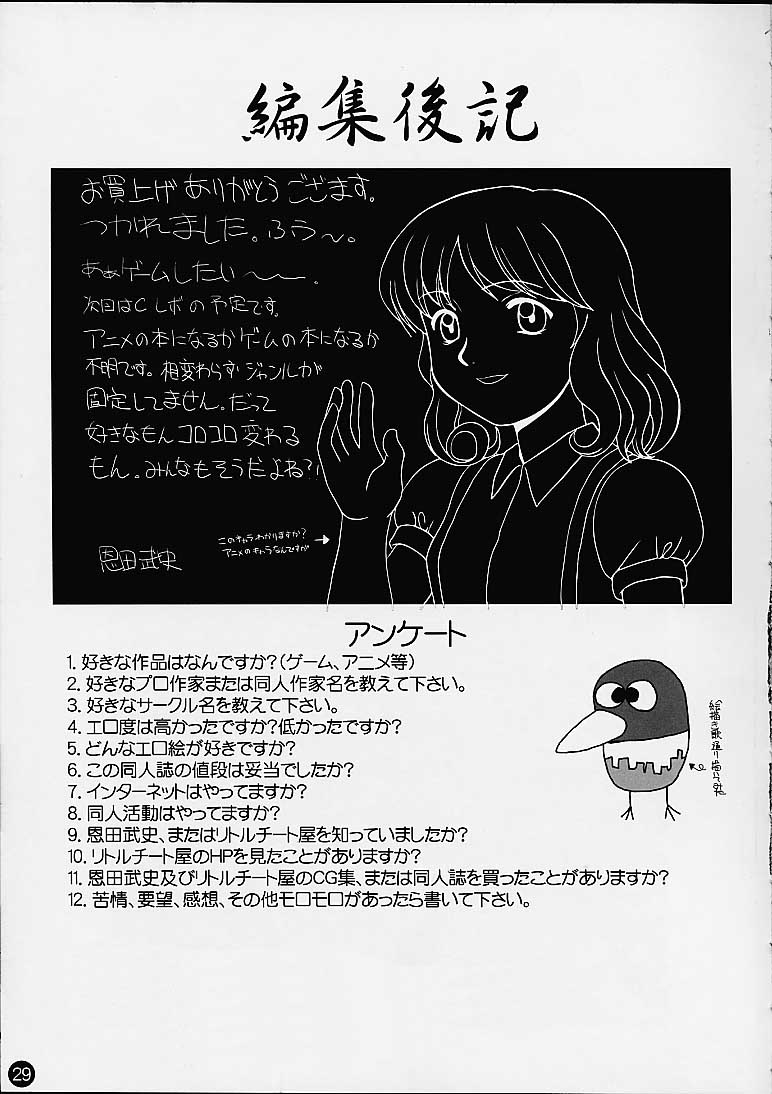 編集後記
お買上げありがとうございます。
つかれました。ふう〜。
あぁゲームしたい〜〜。
次回はCレボの予定です。
アニメの本になるかゲームの本になるか
不明です。相変わらずジャンルが
固定してません。だって
好きなもんコロコロ変わる
もん。みんなもそうだよね?!
このキャラわかりますか?
アニメのキャラなんですが
恩田武史
アンケート
1. 好きな作品はなんですか?(ゲーム、アニメ等)
2. 好きなプロ作家または同人作家名を教えて下さい。
3. 好きなサークル名を教えて下さい。
4. エロ度は高かったですか?低かったですか?
5. どんなエロ絵が好きですか?
6. この同人誌の値段は妥当でしたか?
7. インターネットはやってますか?
8. 同人活動はやってますか?
9. 恩田武史、またはリトルチート屋を知っていましたか?
10. リトルチート屋のHPを見たことがありますか?
11. 恩田武史及びリトルチート屋のCG集、または同人誌を買ったことがありますか?
12. 苦情、要望、感想、その他モロモロがあったら書いて下さい。
絵描き歌通り描いた
29